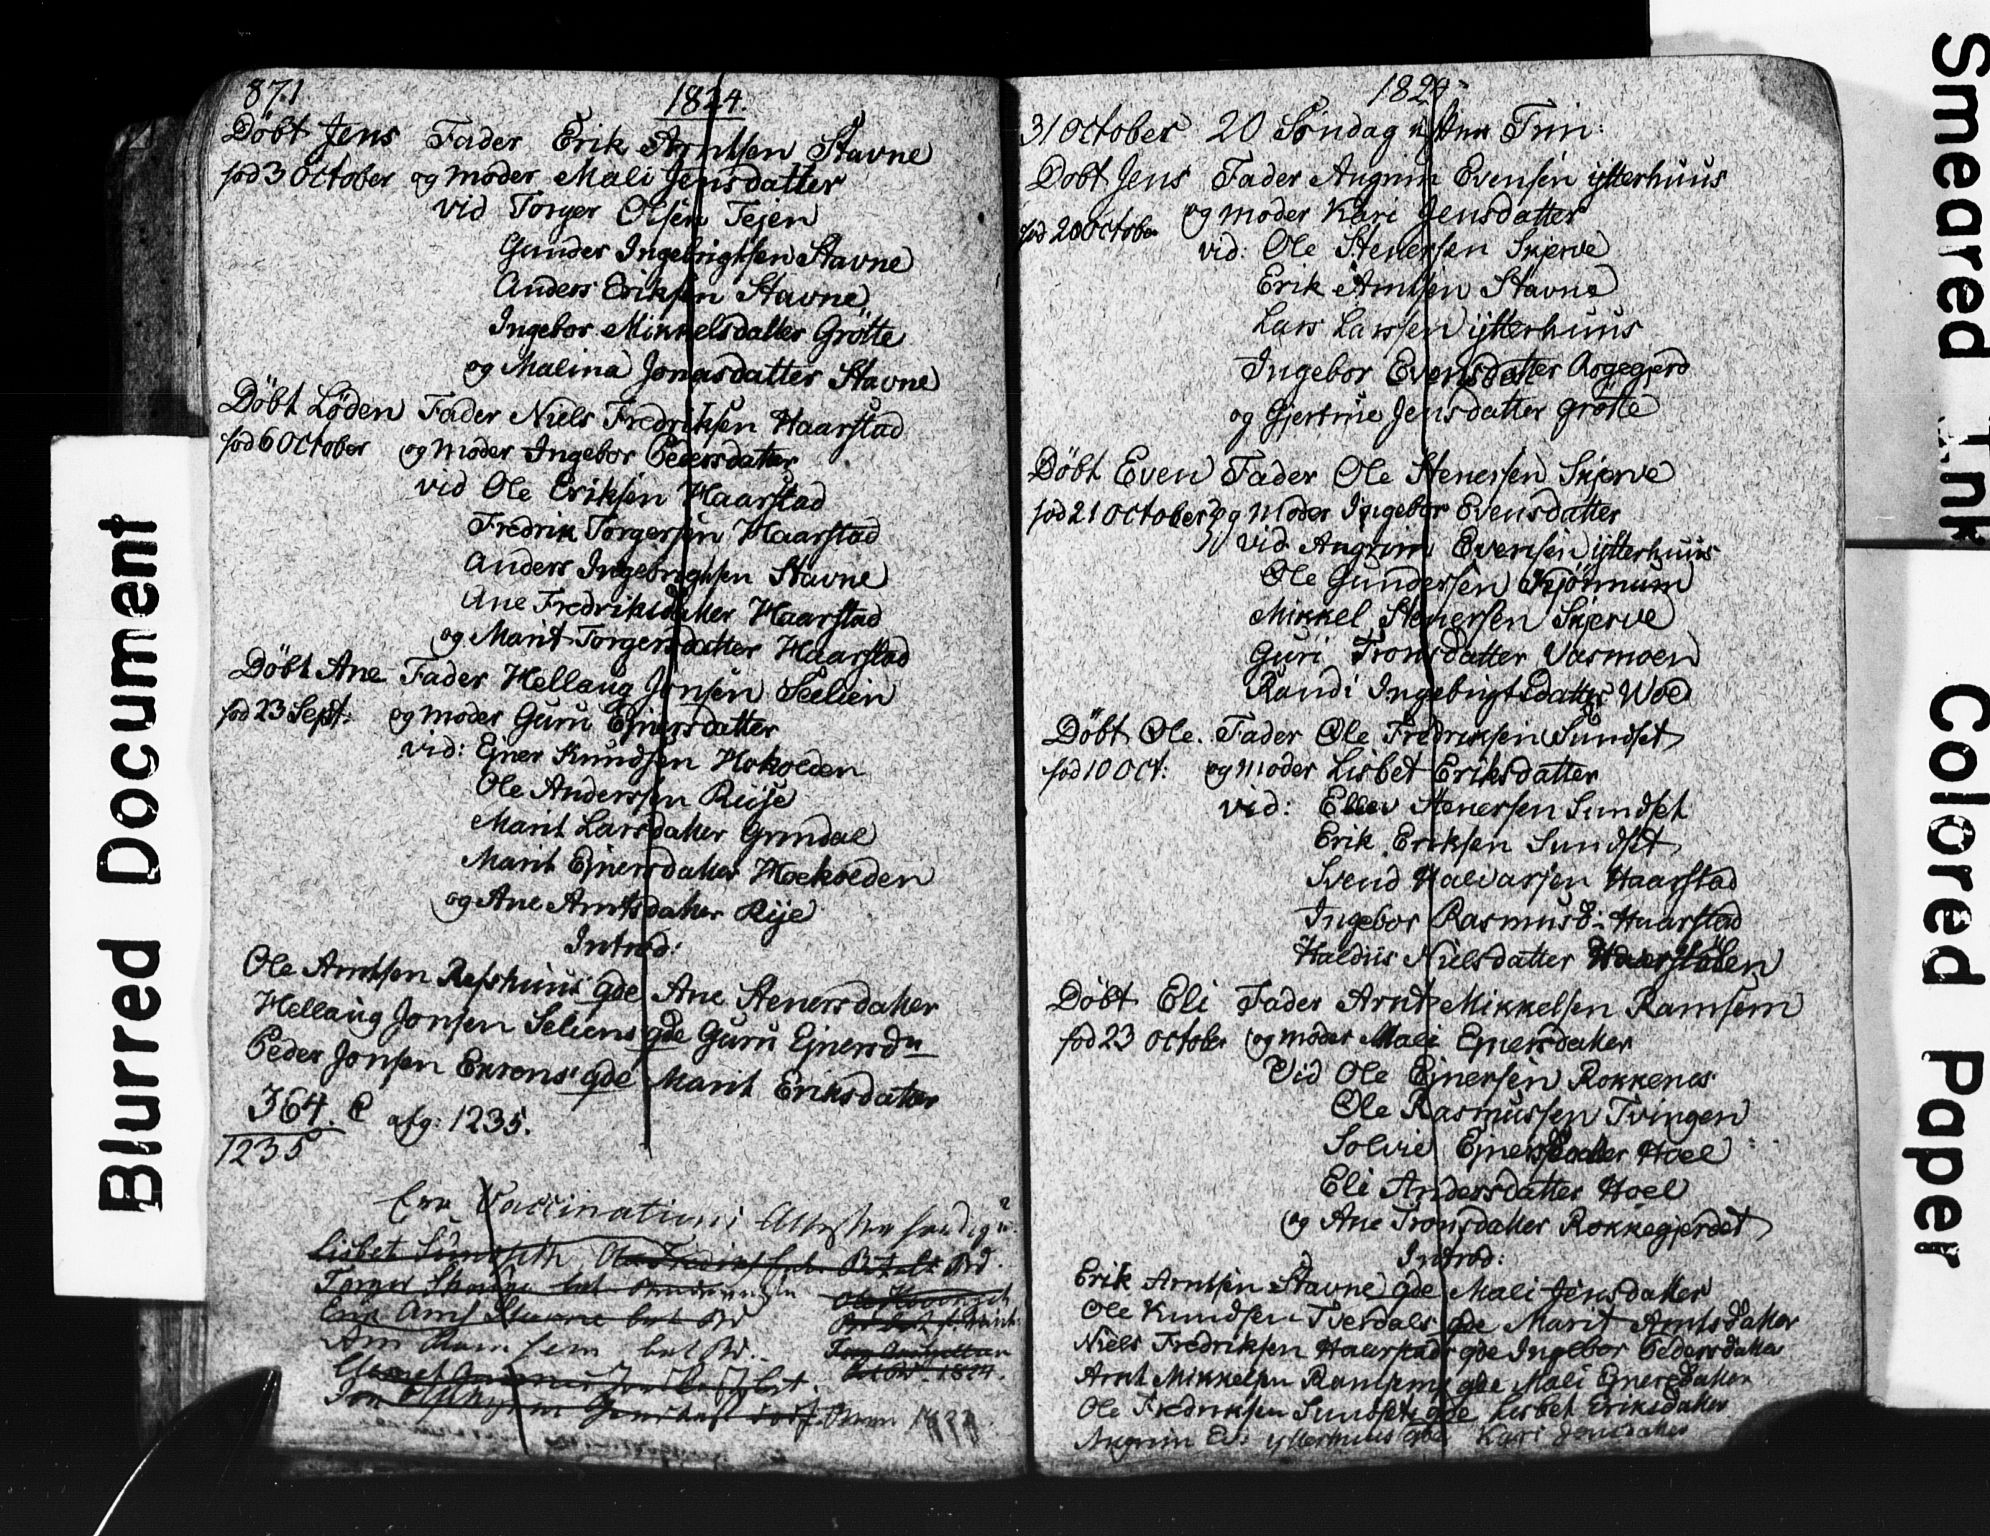 871.
1824.
Döbt Jens Fader Erik Arntsen Stavne
fød 3 October og moder Mali Jensdatter
vid Torger Olsen Tejen
Gunder Ingebrigtsen Stavne
Anders Eriksen Stavne
Ingebor Mikkelsdatter Grötte
og Malina Jonasdatter Stavne
Döbt Löden Fader Niels Fredriksen Haarstad
fød 6 October og moder Ingebor Pedersdatter
vid Ole Eriksen Haarstad
Fredrik Torgersen Haarstad
Anders Ingebrigtsen Stavne
Ane Fredriksdatter Haarstad
og Marit Torgersdatter Haarstad
Döbt Ane Fader Hellaug Jonsen Seelien
fød 23 Sept: og moder Guru Ejnersdatter
vid: Ejner Knudsen Hokolden
Ole Andersen Riise
Marit Larsdatter Grindal
Marit Ejnersdatter Hoekolden
og Ane Arntsdatter Rije
Introd:
Ole Arntsen Refshuus gde Ane Stenersdatter
Hellaug Jonsen Seliens gde Guru Ejnersdr
Peder Jonsen Exrons gde Marit Eriksdatter
364. C afg: 1235.
1235
Vaccinations Attester
Lisbet
bet
Erik Arnt Stavne bet
bet
1824.
1824
31 October 20 Søndag efter Trin:
Döbt Jens Fader Angrim Evensen ytterhuus
fød 20 October og moder Kari Jensdatter
vid: Ole Stenersen Skjerve
Erik Arntsen Stavne
Lars Larssen ytterhuus
Ingebor Evensdatter Aagegjerd
og Gjertrue Jensdatter Grötte
Döbt Even Fader Ole Stenersen Skjerve
fød 21 October og Moder Ingebor Evensdatter
vid Angrim Evensen ytterhuus
Ole Gundersen
Mikkel Stenersen Skjerve
Guri Tronsdatter Vasmoen
Randi Ingebrigtsdatter Woe
Döbt Ole. Fader Ole Fredriksen Sundset
fød 10 Oct: og moder Lisbet Eriksdatter
vid: Ellev Stenersen Sundset
Erik Eriksen Sundset
Svend Halvarsen Haarstad
Ingebor Rasmusd: Haarstad
Haldiis Nielsdatter Haarstöen
Döbt Eli Fader Arnt Mikkelsen Ramsem
fød 23 October og moder Mali Ejnersdatter
Vid Ole Ejnersen Rokkenes
Ole Rasmussen Tvingen
Solvie Ejnersdatter Hoel
Eli Andersdatter Hoel
og Ane Tronsdatter Rokkegjerdet
Introd:
Erik Arntsen Stavne gde Mali Jensdatter
Ole Knudsen Tverdals gde Marit Arntsdatter
Niels Fredriksen Haarstads gde Ingebor Pedersdatter
Arnt Mikkelsen Ramsems gde Mali Ejnersdatter
Ole Fredriksen Sundsets gde Lisbet Eriksdatter
Angrim Ev: ytterhuus gde Kari Jensdatter
Blurred Document
Smeared Ink
Colored Paper